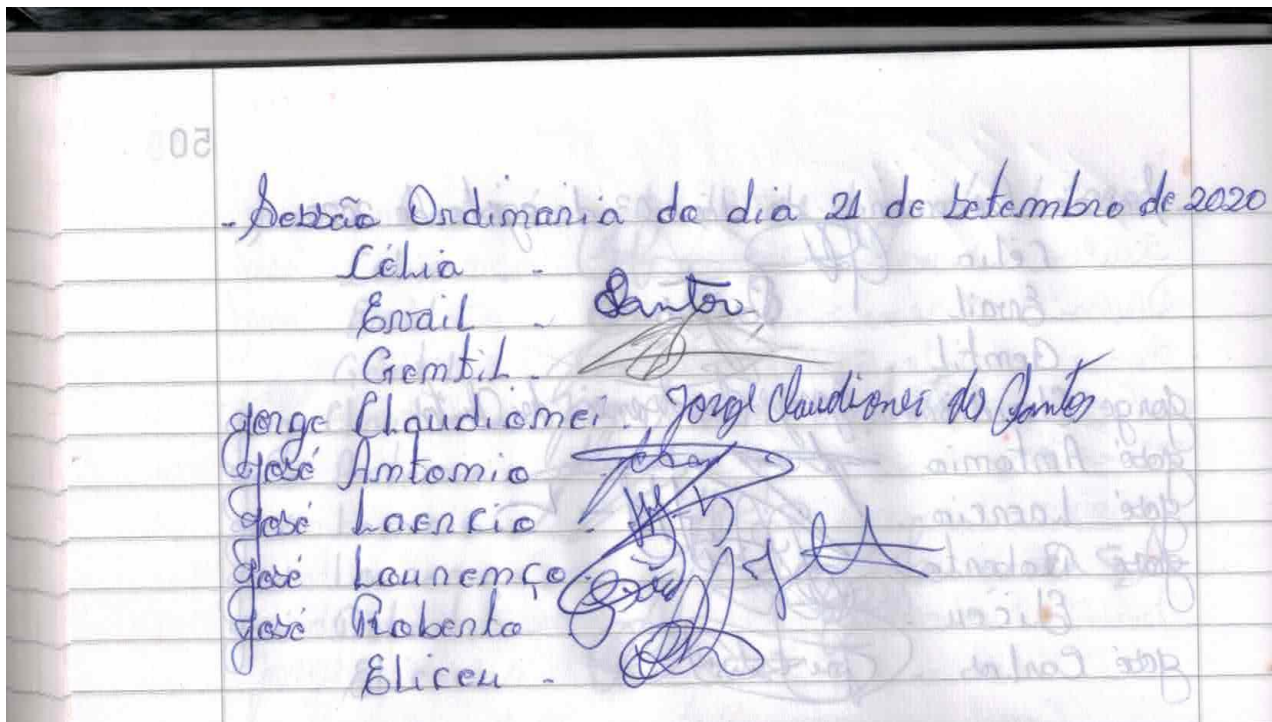 - Sessão Ordinária do dia 21 de setembro de 2020
Célia -
Ervail - Santos
Gentil -
Jorge Claudionei. Jorge Claudionei do Santos
José Antonio
José Laercio -
José Lourenço.
José Roberto
Eliceu -